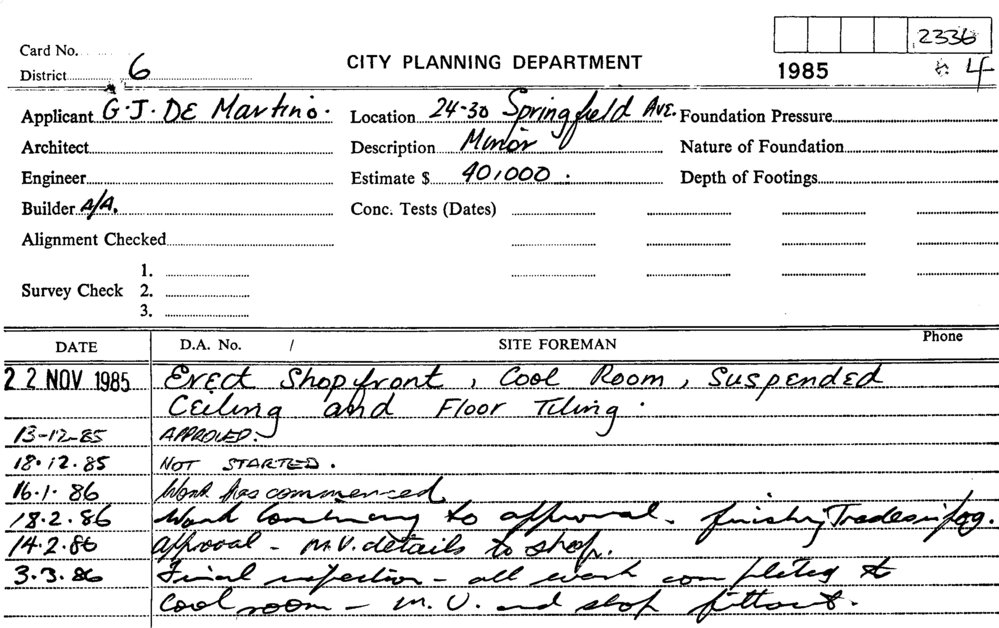 2336
Card No.
District 6
CITY PLANNING DEPARTMENT
1985 4
Applicant G.J. DE Martino. Location 24-30 Springfield AVE. Foundation Pressure
Architect Description Minor Nature of Foundation
Engineer Estimate $ 40,000. Depth of Footings
Builder A/A. Conc. Tests (Dates)
Alignment Checked
1.
Survey Check 2.
3.
DATE D.A. No. / SITE FOREMAN Phone
22 NOV 1985 Erect Shopfront, Cool Room, Suspended
Ceiling and Floor Tiling.
13-12-85 APPROVED.
18.12.85 NOT STARTED.
16.1.86 Work has commenced
18.2.86 Work continuing to approval. finishing Trades in
14.2.86 approval - M.V. details to shop.
3.3.86 Final inspection - all work completed to
Cool room - M.V. and shop fittout.